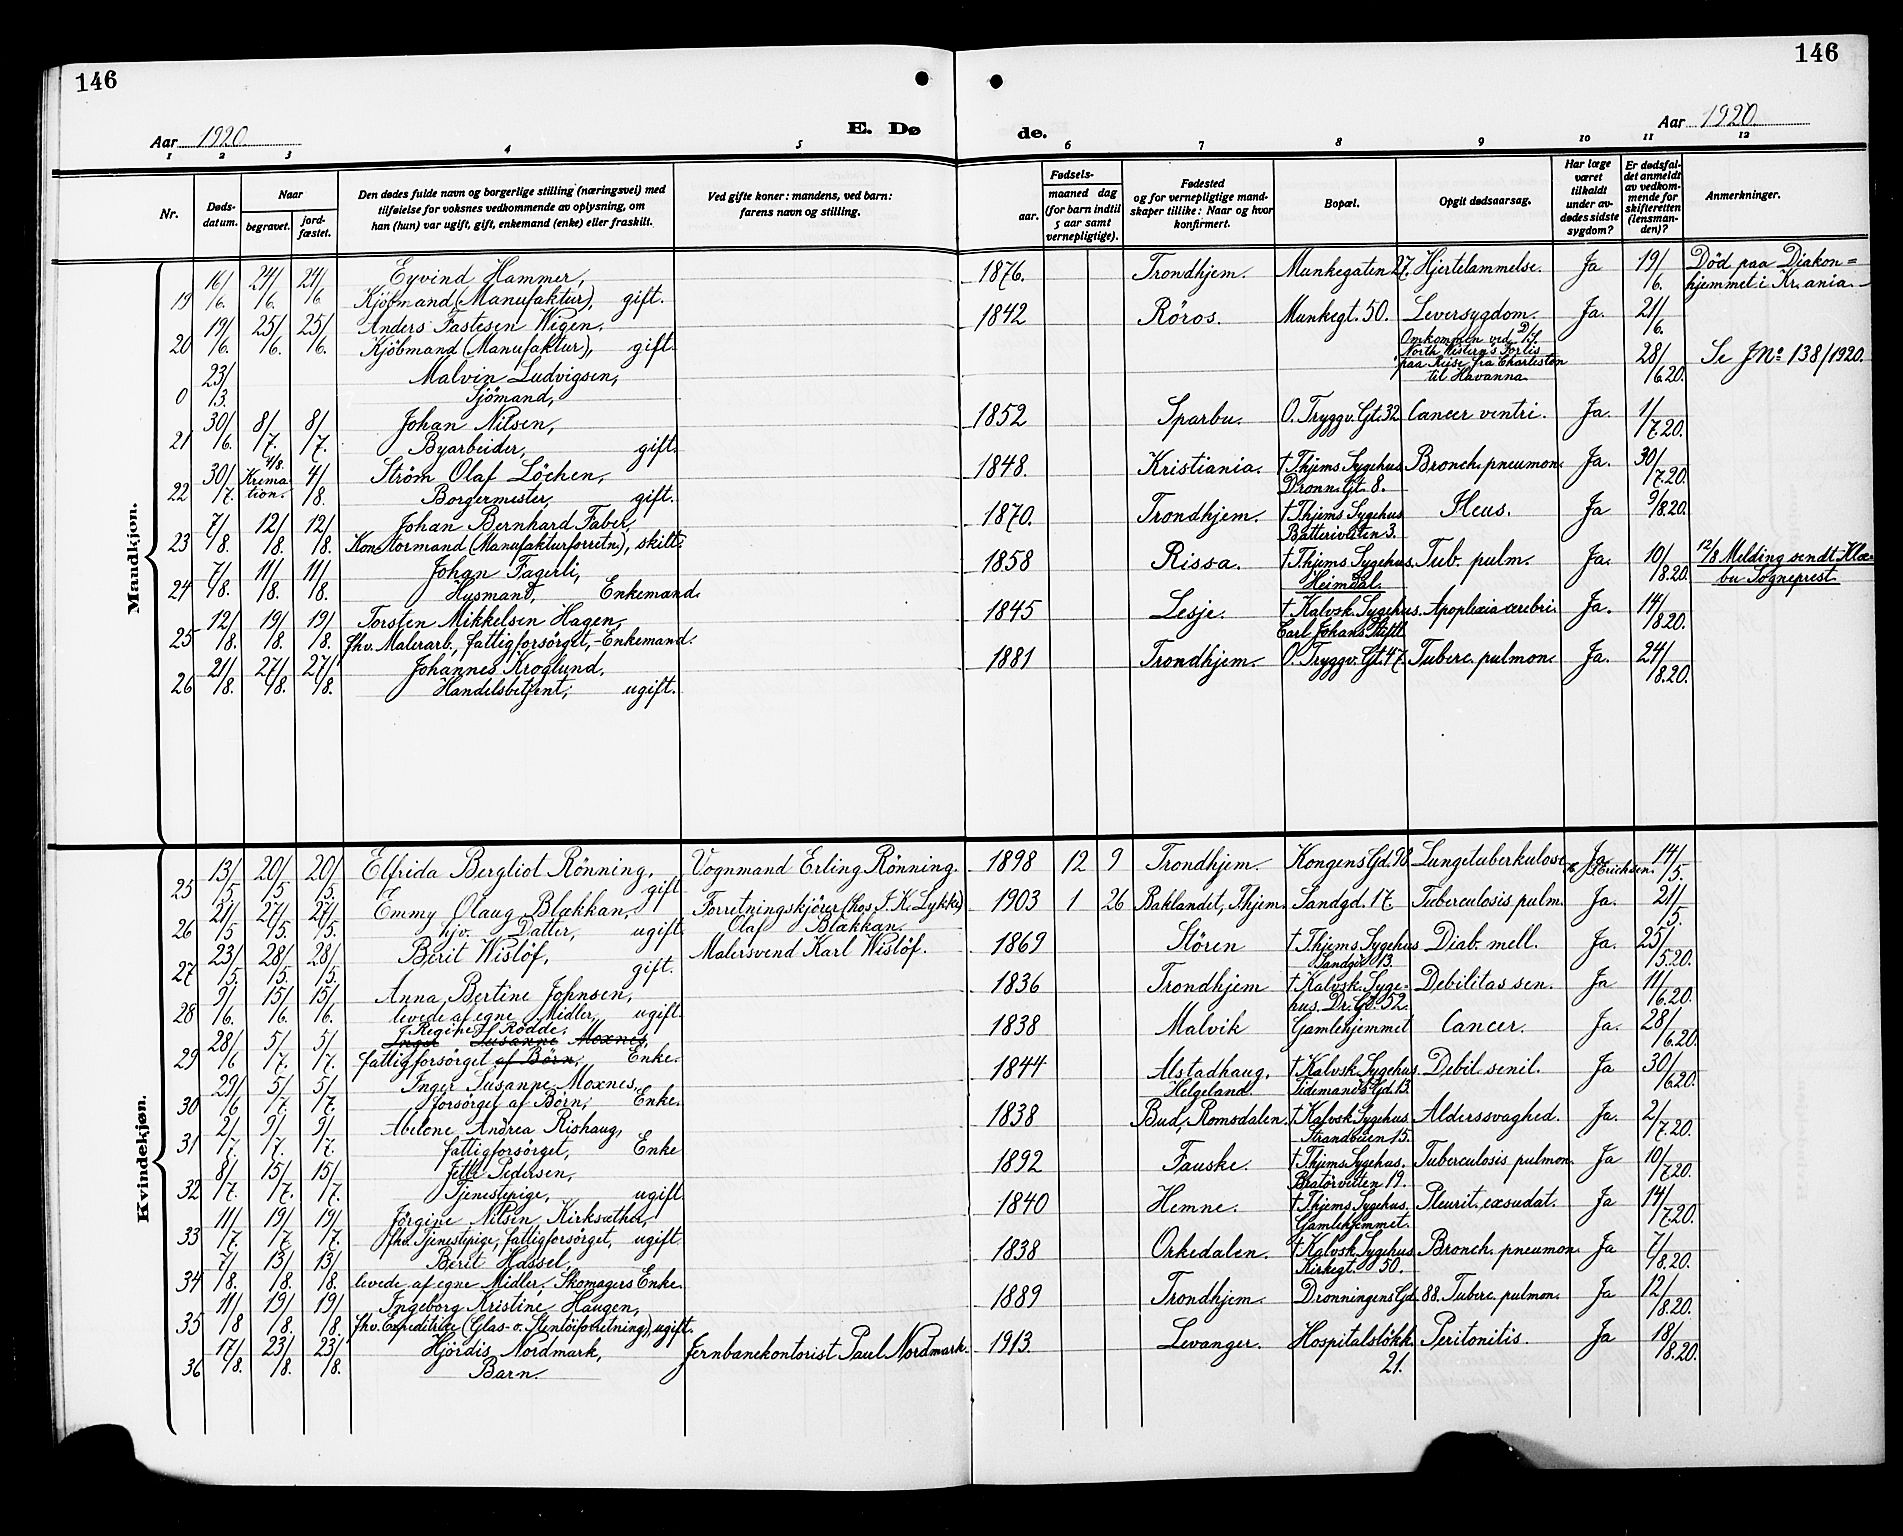 146
146
Aar 1920.
E. Dø
de.
Aar 1920.
1 2 3 4 5 6 7 8 9 10 11 12
Nr.
Døds-
datum.
Naar
begravet.
jord-
fæstet.
Den dødes fulde navn og borgerlige stilling (næringsvei) med
tilføielse for voksnes vedkommende av oplysning, om
han (hun) var ugift, gift, enkemand (enke) eller fraskilt.
Ved gifte koner: mandens, ved barn:
farens navn og stilling.
Fødsels-
aar.
maaned dag
(for barn indtil
5 aar samt
vernepligtige).
Fødested
og for vernepligtige mand-
skaper tillike: Naar og hvor
konfirmert.
Bopæl.
Opgit dødsaarsag.
Har læge
været
tilkaldt
under av-
dødes sidste
sygdom?
Er dødsfal-
det anmeldt
av vedkom-
mende for
skifteretten
(lensman-
den)?
Anmerkninger.
Mandkjøn.
19 16/6. 24/6. 24/6 Eyvind Hammer, 1876. Trondhjem. Munkegaten 27. Hjertelammelse. Ja 19/6. Død paa Diakon=
Kjöbmand (Manufaktur), gift. hjemmet i Kr.ania.
20 19/6. 25/6. 25/6. Anders Fastesen Wigen, 1842 Röros. Munkegt. 50. Leversygdom. Ja. 21/6.
Kjöbmand (Manufaktur), gift.
0 23/3. Malvin Ludvigsen, Omkommen ved D/S. 28/6.20. Se J.No 138/1920.
Sjömand, North Western's Fortis
paa Reise fra Charleston
til Havanna
21 30/6. 8/7. 8/7. Johan Nilsen, 1852 Sparbu. O. Tryggv. Gt. 32 Cancer ventri. Ja. 1/7.20.
Byarbeider, gift.
22 30/7. 4/8. Kremation. 4/8. Ström Olaf Löchen, 1848. Kristiania. † Thjems Sygehus Bronch. pneumon. Ja. 30/7.20.
Borgermester, gift. Dronn. Gt. 8.
23 7/8. 12/8. 12/8. Johan Bernhard Faber, 1870. Trondhjem. † Thjems Sygehus Ileus. Ja 9/8.20.
Kontormand (Manufakturforretn), skilt. Batteriveiten 3.
24 7/8. 11/8. 11/8. Johan Fagerli, 1858 Rissa. † Thjems Sygehus. Tub. pulm. Ja. 10/8.20. 12/8 Melding sendt Klæ-
Husmand, Enkemand. Heimdal. bu Sogneprest
25 12/8. 19/8. 19/8. Torsten Mikkelsen Hagen, 1845 Lesje. † Kalvsk. Sygehus. Apoplexia cerebri. Ja. 14/8.20.
fhv. Malerarb., fattigforsörget, Enkemand. Carl Johans Stift.
26 21/8. 27/8. 27/8. Johannes Kroglund, 1881 Trondhjem. O. Tryggv. Gt. 47. Tuberc. pulmon. Ja. 24/8.20.
Handelsbetjent, ugift.
Kvindekjøn.
25 13/5 20/5 20/5. Elfrida Bergliot Rönning, Vognmand Erling Rönning. 1898 12 9 Trondhjem. Kongens Gd. 98. Lungetuberkulose Ja 14/5.
gift Erichsen.
26 21/5 27/5. 27/5. Emmy Olaug Blækkan, Forretningskjörer (hos I. K. Lykke) 1903 1 26 Baklandet, Thjem. Sandgd. 17. Tuberculosis pulm. Ja. 21/5.
hjv. Datter, ugift Olaf Blækkan.
27 23/5. 28/5. 28/5. Berit Wislöf, Malersvend Karl Wislöf. 1869 Stören † Thjems Sygehus Diab. mell. Ja. 25/5.20.
gift. Sandgd. 13.
28 9/6. 15/6. 15/6. Anna Bertine Johnsen, 1836 Trondhjem † Kalvsk. Syge- Debilitas sen. Ja 11/6.20.
levede af egne Midler, ugift. hus. Dr. Gd. 52.
Regine Rödde.
29 28/6 5/7. 5/7. Inger Susanne Moxnes, 1838 Malvik Gamlehjemmet Cancer. Ja. 28/6.20.
fattigforsörget af Börn, Enke.
30 29/6 5/7. 5/7. Inger Susanne Moxnes, 1844 Alstadhaug, † Kalvsk. Sygehus. Debil. senil. Ja 30/6.20.
forsörget af Börn, Enke. Helgeland. Tidemands Gd. 13.
31 2/7. 9/7. 9/7. Abelone Andrea Rishaug, 1838 Bud, Romsdalen. † Kalvsk. Sygehus. Alderssvaghed. Ja. 2/7.20.
fattigforsörget, Enke Strandveien 15.
32 8/7. 15/7. 15/7. Jette Pedersen, 1892 Fauske. † Thjems Sygehus. Tuberculosis pulmon. Ja 10/7.20.
Tjenestepige, ugift Bratörveiten 19.
33 11/7. 19/7. 19/7. Jörgine Nilsen Kirksæther, 1840 Hemne. † Thjems Sygehus. Pleurit. exsudat. Ja 14/7.20.
fhv. Tjenestepige, fattigforsörget, ugift Gamlehjemmet.
34 7/8. 13/8. 13/8. Berit Hassel, 1838 Orkedalen. † Kalvsk. Sygehus Bronch. pneumon. Ja 7/8.20.
levede af egne Midler, Skomagers Enke. Kirkegt. 50.
35 11/8 19/8. 19/8. Ingeborg Kristine Haugen, 1889 Trondhjem. Dronningens Gd. 88. Tuberc. pulmon. Ja 12/8.20.
fhv. Expeditrice (Glas- o. Stentöiforretning), ugift.
36 17/8. 23/8. 23/8. Hjördis Nordmark, Jernbanekontorist Paul Nordmark. 1913. Levanger. Hospitalslökk. Peritonitis. Ja 18/8.20.
Barn. 21.